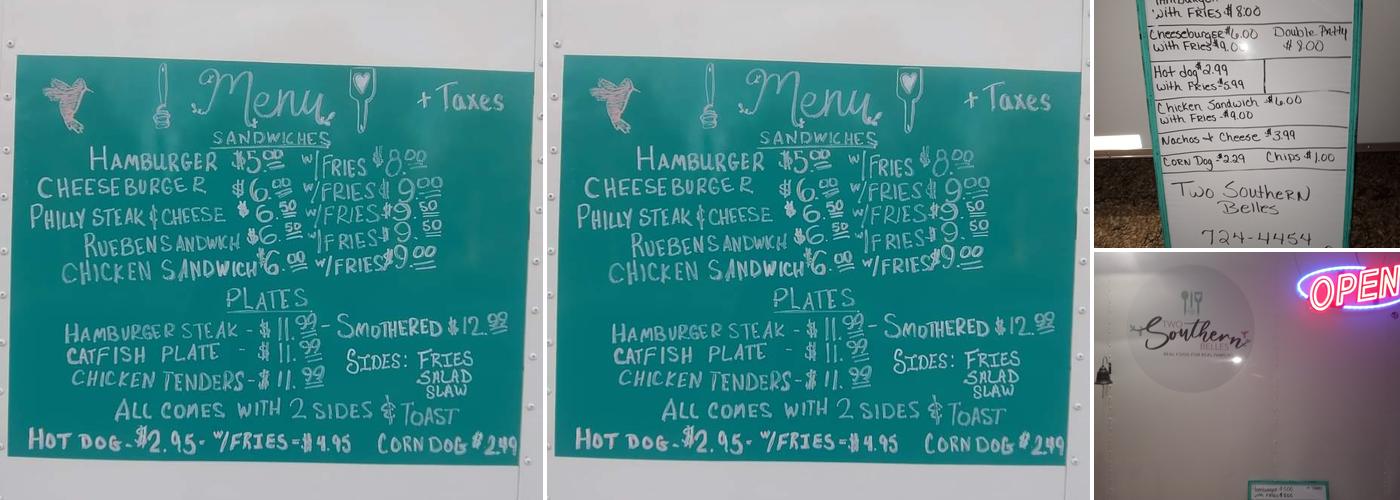 Menu
+ Taxes
SANDWICHES
HAMBURGER $5.00 w/FRIES $8.00
CHEESEBURGER $6.00 w/FRIES $9.00
PHILLY STEAK & CHEESE $6.50 w/FRIES $9.50
RUEBEN SANDWICH $6.50 w/FRIES $9.50
CHICKEN SANDWICH $6.00 w/FRIES $9.00
PLATES
HAMBURGER STEAK - $11.99 - SMOTHERED $12.99
CATFISH PLATE - $11.99
CHICKEN TENDERS - $11.99
SIDES: FRIES
SALAD
SLAW
ALL COMES WITH 2 SIDES & TOAST
HOT DOG - $2.95 - w/FRIES = $4.95 CORN DOG $2.49
Menu
+ Taxes
SANDWICHES
HAMBURGER $5.00 w/FRIES $8.00
CHEESEBURGER $6.00 w/FRIES $9.00
PHILLY STEAK & CHEESE $6.50 w/FRIES $9.50
RUEBEN SANDWICH $6.50 w/FRIES $9.50
CHICKEN SANDWICH $6.00 w/FRIES $9.00
PLATES
HAMBURGER STEAK - $11.99 - SMOTHERED $12.99
CATFISH PLATE - $11.99
CHICKEN TENDERS - $11.99
SIDES: FRIES
SALAD
SLAW
ALL COMES WITH 2 SIDES & TOAST
HOT DOG - $2.95 - w/FRIES = $4.95 CORN DOG $2.49
with FRIES $8.00
Cheeseburger $6.00 Double Patty
with Fries $9.00 $8.00
Hot dog $2.99
with Fries $5.99
Chicken Sandwich $6.00
with Fries $9.00
Nachos + Cheese $3.99
CORN Dog $2.29 Chips $1.00
Two Southern
Belles
724-4454
OPEN
TWO
Southern
BELLES
REAL FOOD FOR REAL